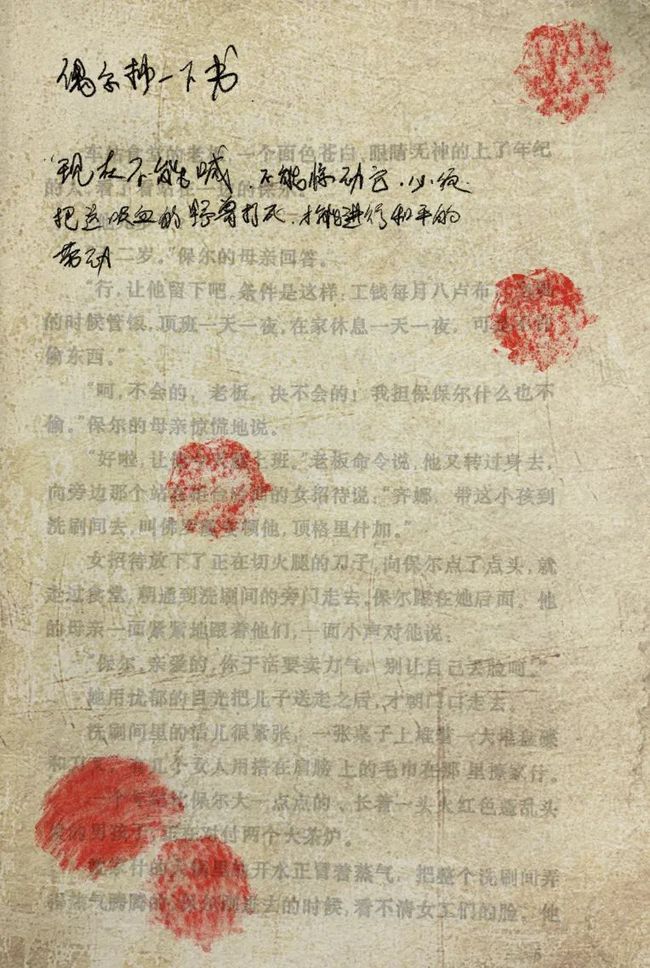 偶尔抄一下书
车站食堂的老板,一个面色苍白,眼睛无神的上了年纪
"现在不能喊,不能惊动它.必须
把这吸血的野兽打死.才能进行和平的
劳动
二岁,"保尔的母亲回答。
"行,让他留下吧。条件是这样:工钱每月八卢布,
的时候管饭,顶班一天一夜,在家休息一天一夜。可
偷东西。"
"呵,不会的,老板。决不会的!我担保保尔什么也不
偷。"保尔的母亲惊慌地说。
"好啦,让他 上班。"老板命令说,他又转过身去,
向旁边那个站在 的女招待说:"齐娜,带这小孩到
洗刷间去,叫佛 他,顶格里什加。"
女招待放下了正在切火腿的刀子,向保尔点了点头,就
走过食堂,朝通到洗刷间的旁门走去。保尔跟在她后面。他
的母亲一面紧紧地跟着他们,一面小声对他说:
"保尔,亲爱的,你干活要卖力气,别让自己丢脸呵。"
她用忧郁的目光把儿子送走之后,才朝门口走去。
洗刷间里的活儿很紧张:一张桌子上堆着一大堆盘碟
和刀叉,有几个女人用搭在肩膀上的毛巾在那里擦家伙。
一个 保尔大一点点的、长着一头火红色蓬乱头
的男孩子,正在对付两个大茶炉。
开水正冒着蒸气,把整个洗刷间弄
蒸气腾腾的, 进去的时候,看不清女工们的脸。他